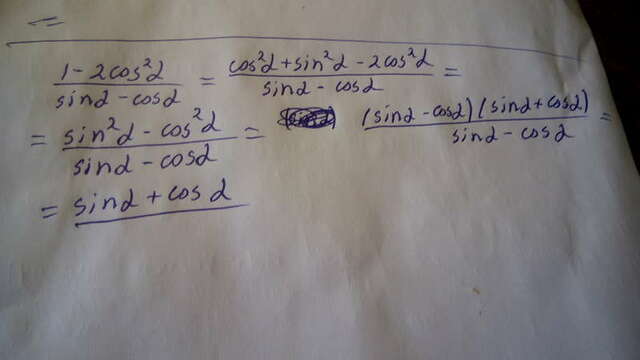 (1 - 2cos²α)/(sinα - cosα) = (cos²α + sin²α - 2cos²α)/(sinα - cosα) =
= (sin²α - cos²α)/(sinα - cosα) = ((sinα - cosα)(sinα + cosα))/(sinα - cosα) =
= sinα + cosα